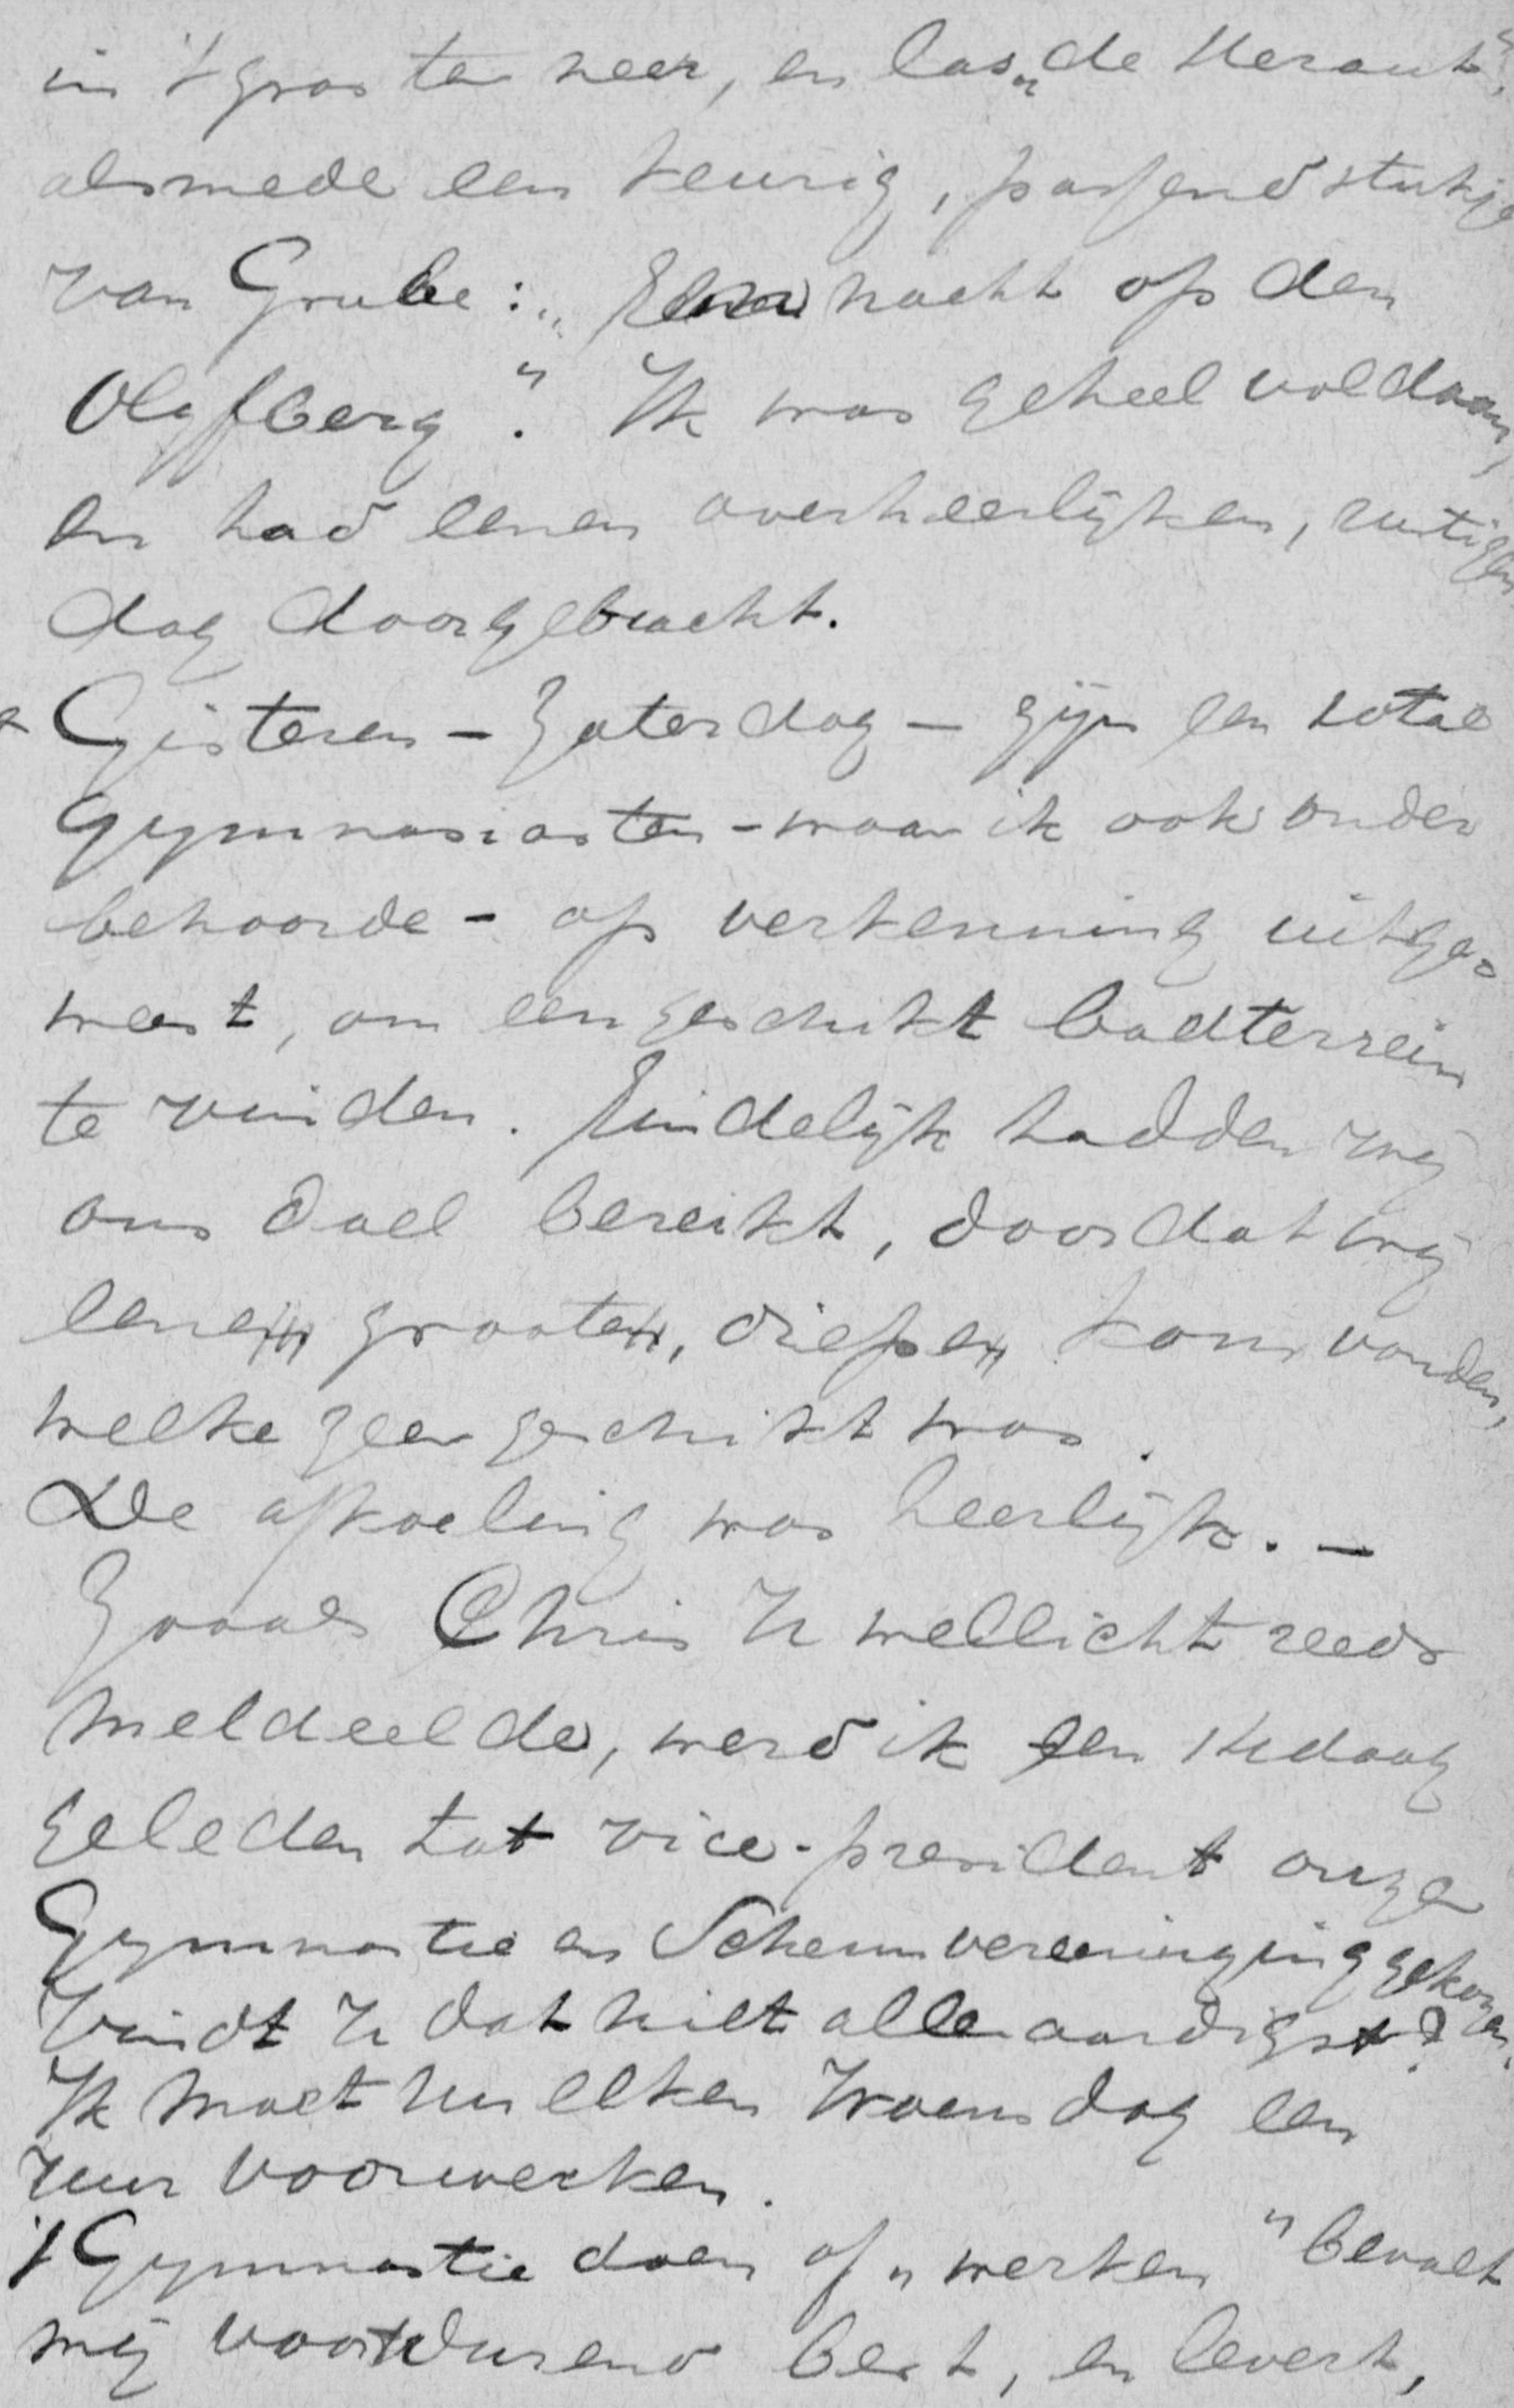 in 't gras ter neer, en las „de Heraut",
alsmede een keurig, passend stukje
van Grube: „Een nacht op den
Olyfberg". Ik was geheel voldaan,
en had eenen overheerlijken, rustigen
dag doorgebracht.
Gisteren – Zaterdag – zijn een 10tal
Gymnasiasten – waar ik ook onder
behoorde – op verkenning uitge=
weest, om een geschikt badterrein
te vinden. Eindelijk hadden wij
ons doel bereikt, doordat wij
eene groote, diepe kom vonden,
welke zeer geschikt was.
De afkoeling was heerlijk. –
Zooals Chris U wellicht reeds
meldeelde, werd ik een 14 daag
geleden tot vice-president onzer
Gymnastie en Schermvereeniging gekozen.
Vindt U dat niet alleraardigst?
Ik moet hun elken Woensdag een
uur voorwerken.
't Gymnastie doen of „werken" bevalt
mij voortdurend best, en levert,